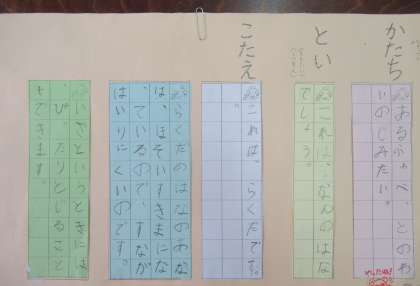 かたち
あるふぁべっとのわ
いのじみたい。
とい
これは、なんのはな
でしょう。
こたえ
これは、らくだです
。
らくだのはなのあな
は、ほそいすきまにな
っているので、すなが
はいりにくいのです。
いざというときには
、ぴったりとじること
もできます。